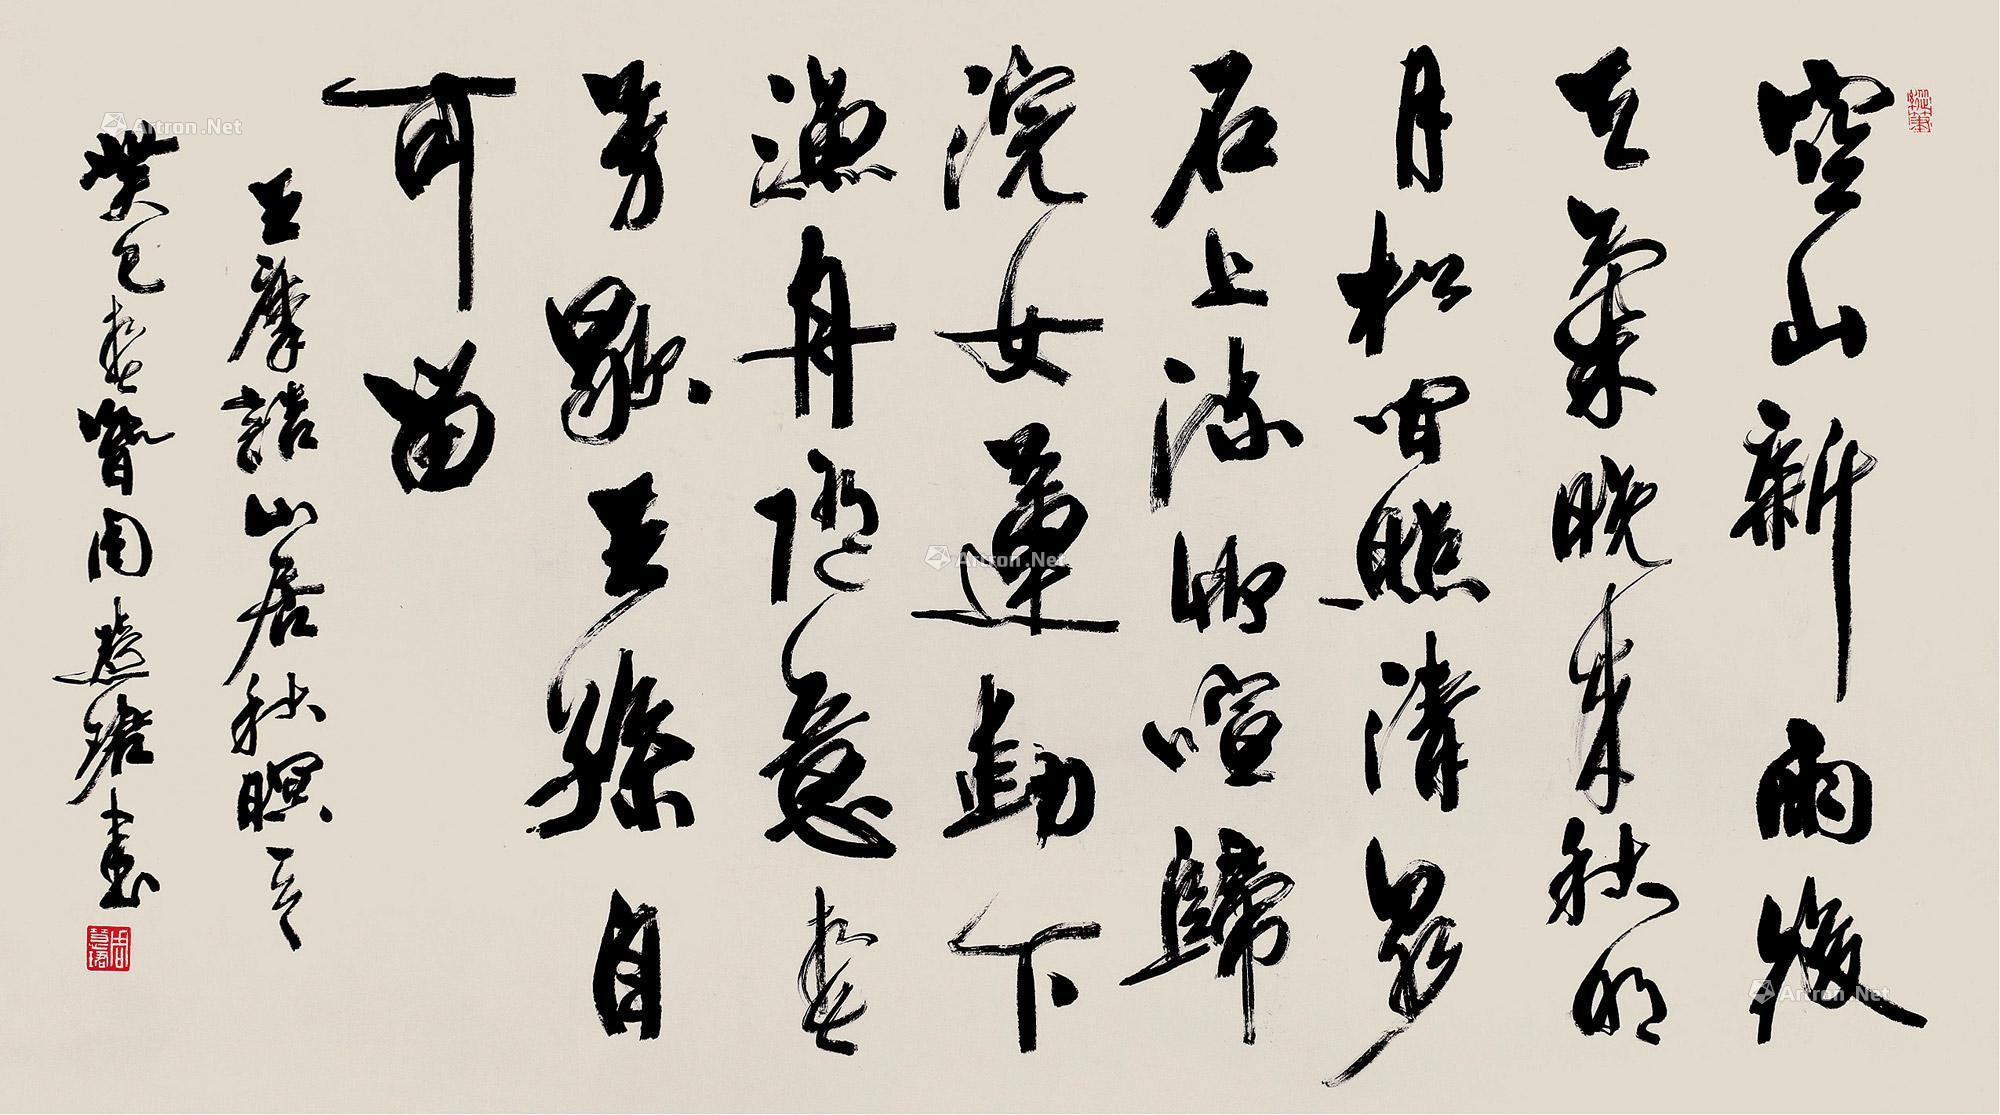 空山新雨後
天氣晚来秋明
月松間照清泉
石上流竹喧歸
浣女蓮動下
漁舟随意春
芳歇王孫自
可留
王摩詰山居秋暝一首
癸巳春周慧珺書
周慧珺
Artron.Net
Artron.Net
Artron.Net